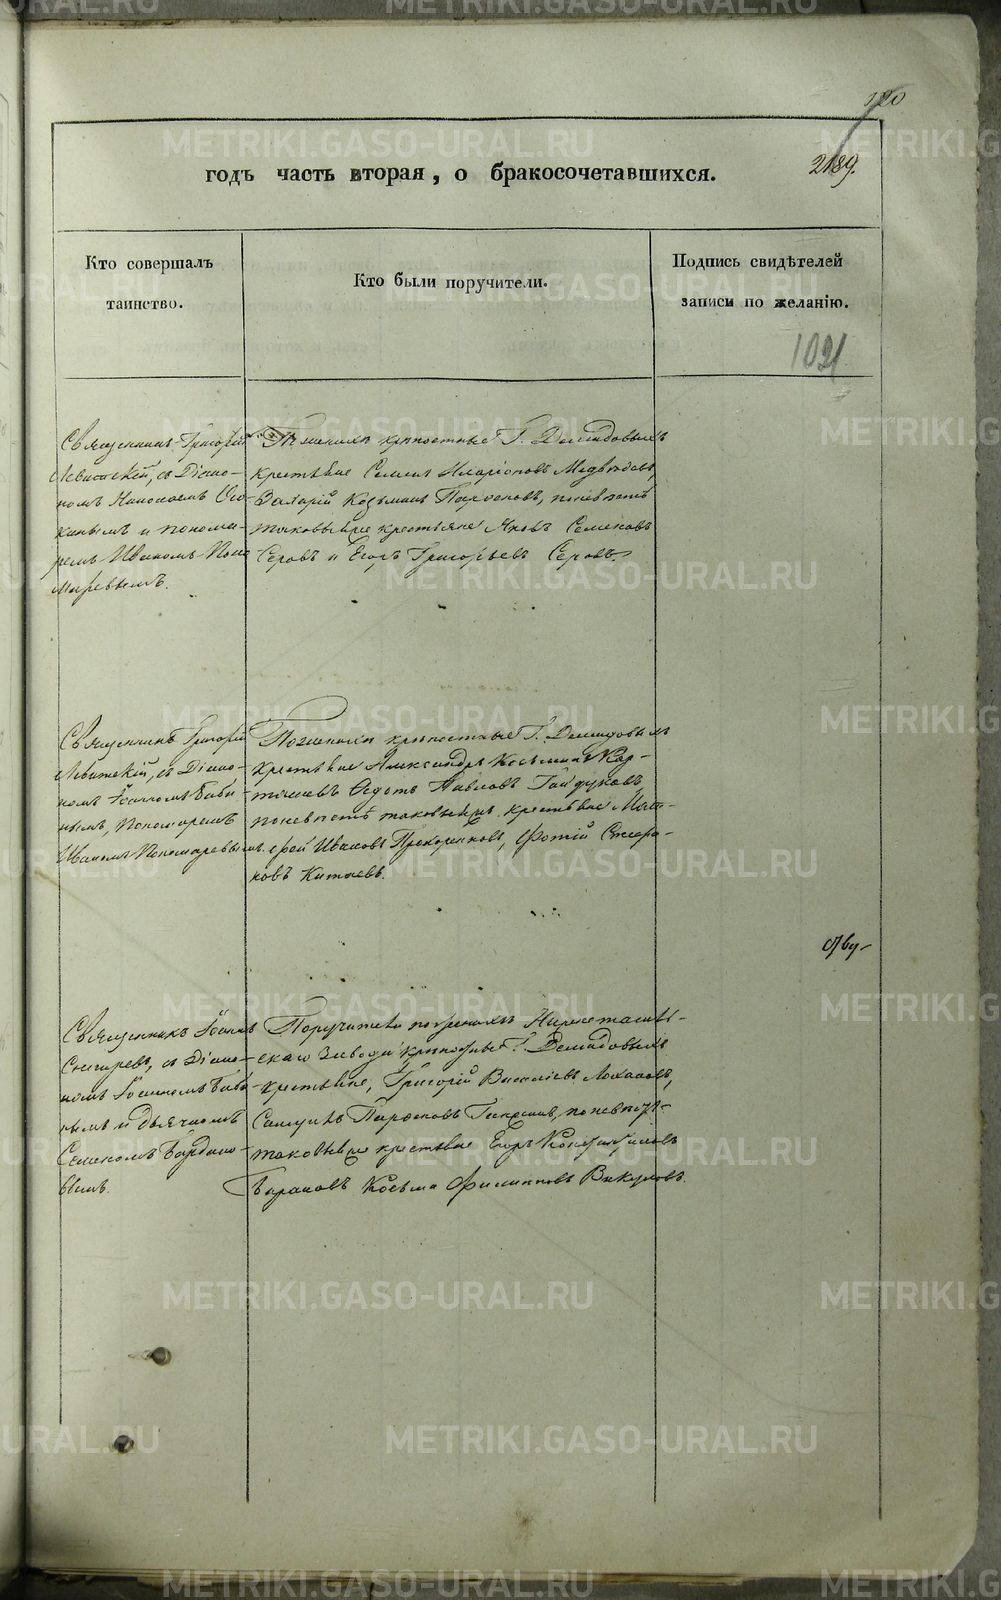 120
2189.
годъ часть вторая, о бракосочетавшихся.
Кто совершалъ
таинство.
Кто были поручители.
Подпись свидѣтелей
записи по желанію.
1021
Священникъ Григорій
Левитскій, съ Діако-
номъ
и понома-
ремъ Иваномъ Поно
маревымъ.
По женихѣ крѣпостные Г. Демидовыхъ
крестьяне Семенъ Иларіоновъ Медвѣдевъ,
Захарій Козьминъ Парѳеновъ, по невѣстѣ
таковыеже крестьяне Яковъ Семеновъ
Серовъ и Егоръ Григорьевъ Серовъ.
Священникъ Григорій
Левитскій, съ Діако-
номъ Іоанномъ Баби
нымъ, Пономаремъ
Иваномъ Пономаревымъ.
По женихѣ крѣпостные Г. Демидовыхъ
крестьяне Александръ Козьминъ Кар-
ташевъ Ѳедотъ Павловъ Гайдуковъ
по невѣстѣ таковыеже крестьяне
Ивановъ Фотій
новъ Китаевъ.
Священникъ Іоаннъ
Снигиревъ, съ Діако-
номъ Іоанномъ Баби-
нымъ и дьячкомъ
Семеномъ
вымъ.
Поручители по женихѣ
скаго завода крѣпостные Г. Демидовыхъ
крестьяне, Григорій Василіевъ
Парѳеновъ по невѣстѣ
таковыеже крестьяне Егоръ Константиновъ
Барановъ Козьма Филипповъ Викуловъ.
METRIKI.GASO-URAL.RU